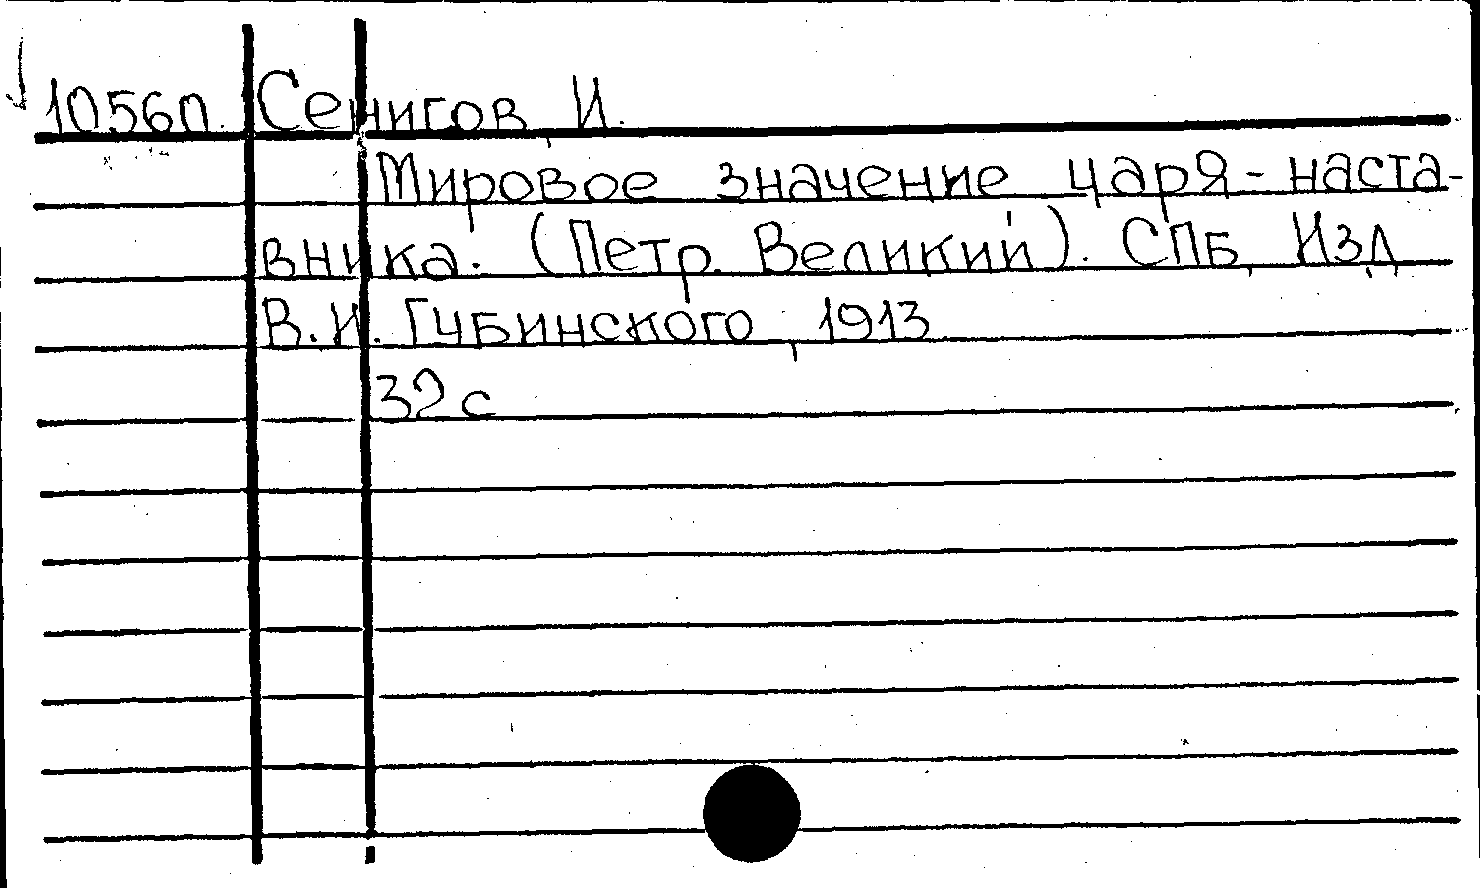 1056п. Сенигов, И.
Мировое значение царя-наста-
вника. (Петр. Великий). СПБ, Изд.
В.И. Губинского, 1913
32 с